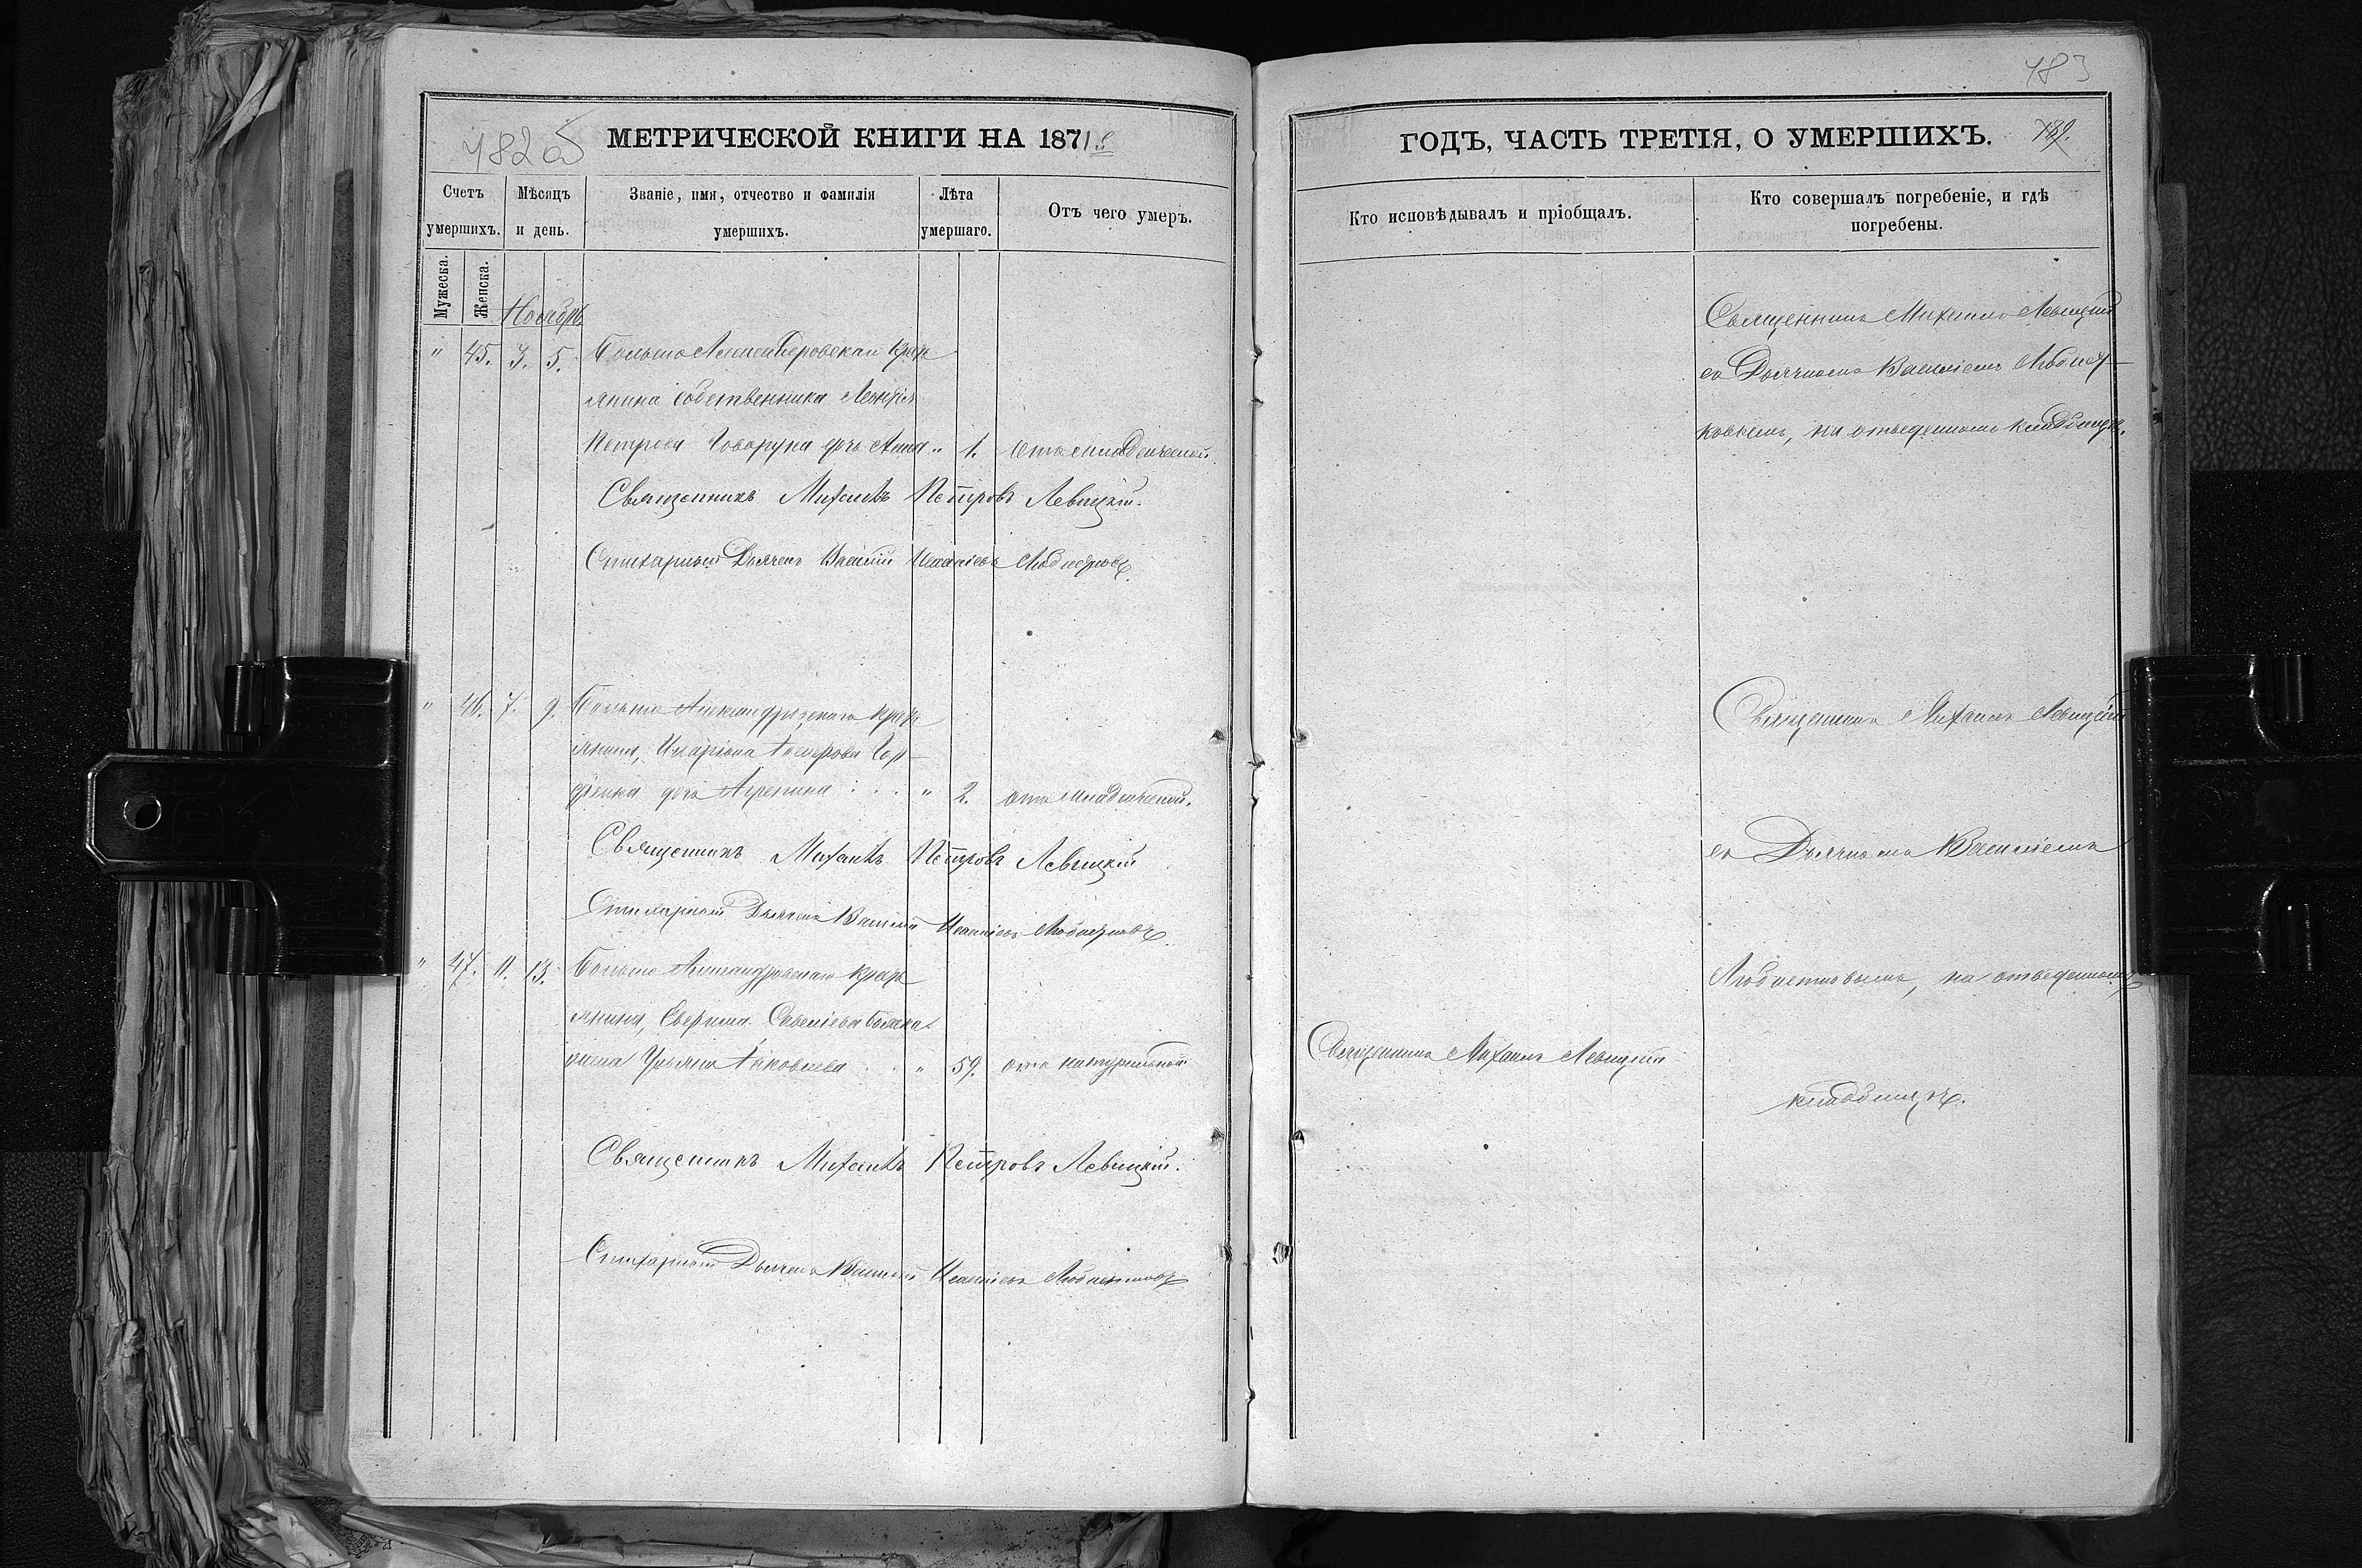 482об
МЕТРИЧЕСКОЙ КНИГИ НА 1871й
Счетъ умершихъ.
Мѣсяцъ и день.
Званіе, имя, отчество и фамилія умершихъ.
Лѣта умершаго.
Отъ чего умеръ.
Мужеска.
Женска.
Ноябрь
" 45. 3. 5. Большо крес
янина собственника
Петрова дочь Анна " 1. отъ младенческой
Священникъ Михаилъ Петровъ Левицкій.
Стихарный Дьячекъ Василій
" 46. 7. 9. Большо Александровскаго крест
янина, Иларіона
дочь Агрепина . . . " 2. отъ младенческой.
Священникъ Михаилъ Петровъ Левицкій
Стихарный Дьячекъ Василій
" 47. 11. 13. Большо Александровскаго крест
янина, Савеліева
жена Ульяна Яковлева . . " 59. отъ натуральной
Священникъ Михаилъ Петровъ Левицкій.
Стихарный Дьячекъ Василій
483
ГОДЪ, ЧАСТЬ ТРЕТІЯ, О УМЕРШИХЪ.
Кто исповѣдывалъ и пріобщалъ.
Кто совершалъ погребеніе, и гдѣ погребены.
Священникъ Михаилъ Левицкій
съ Дьячкомъ Василіемъ
на отведенномъ кладбищѣ.
Священникъ Михаилъ Левицкій
съ Дьячкомъ Василіемъ
на отведенномъ
Священникъ Михаилъ Левицкій
кладбищѣ.